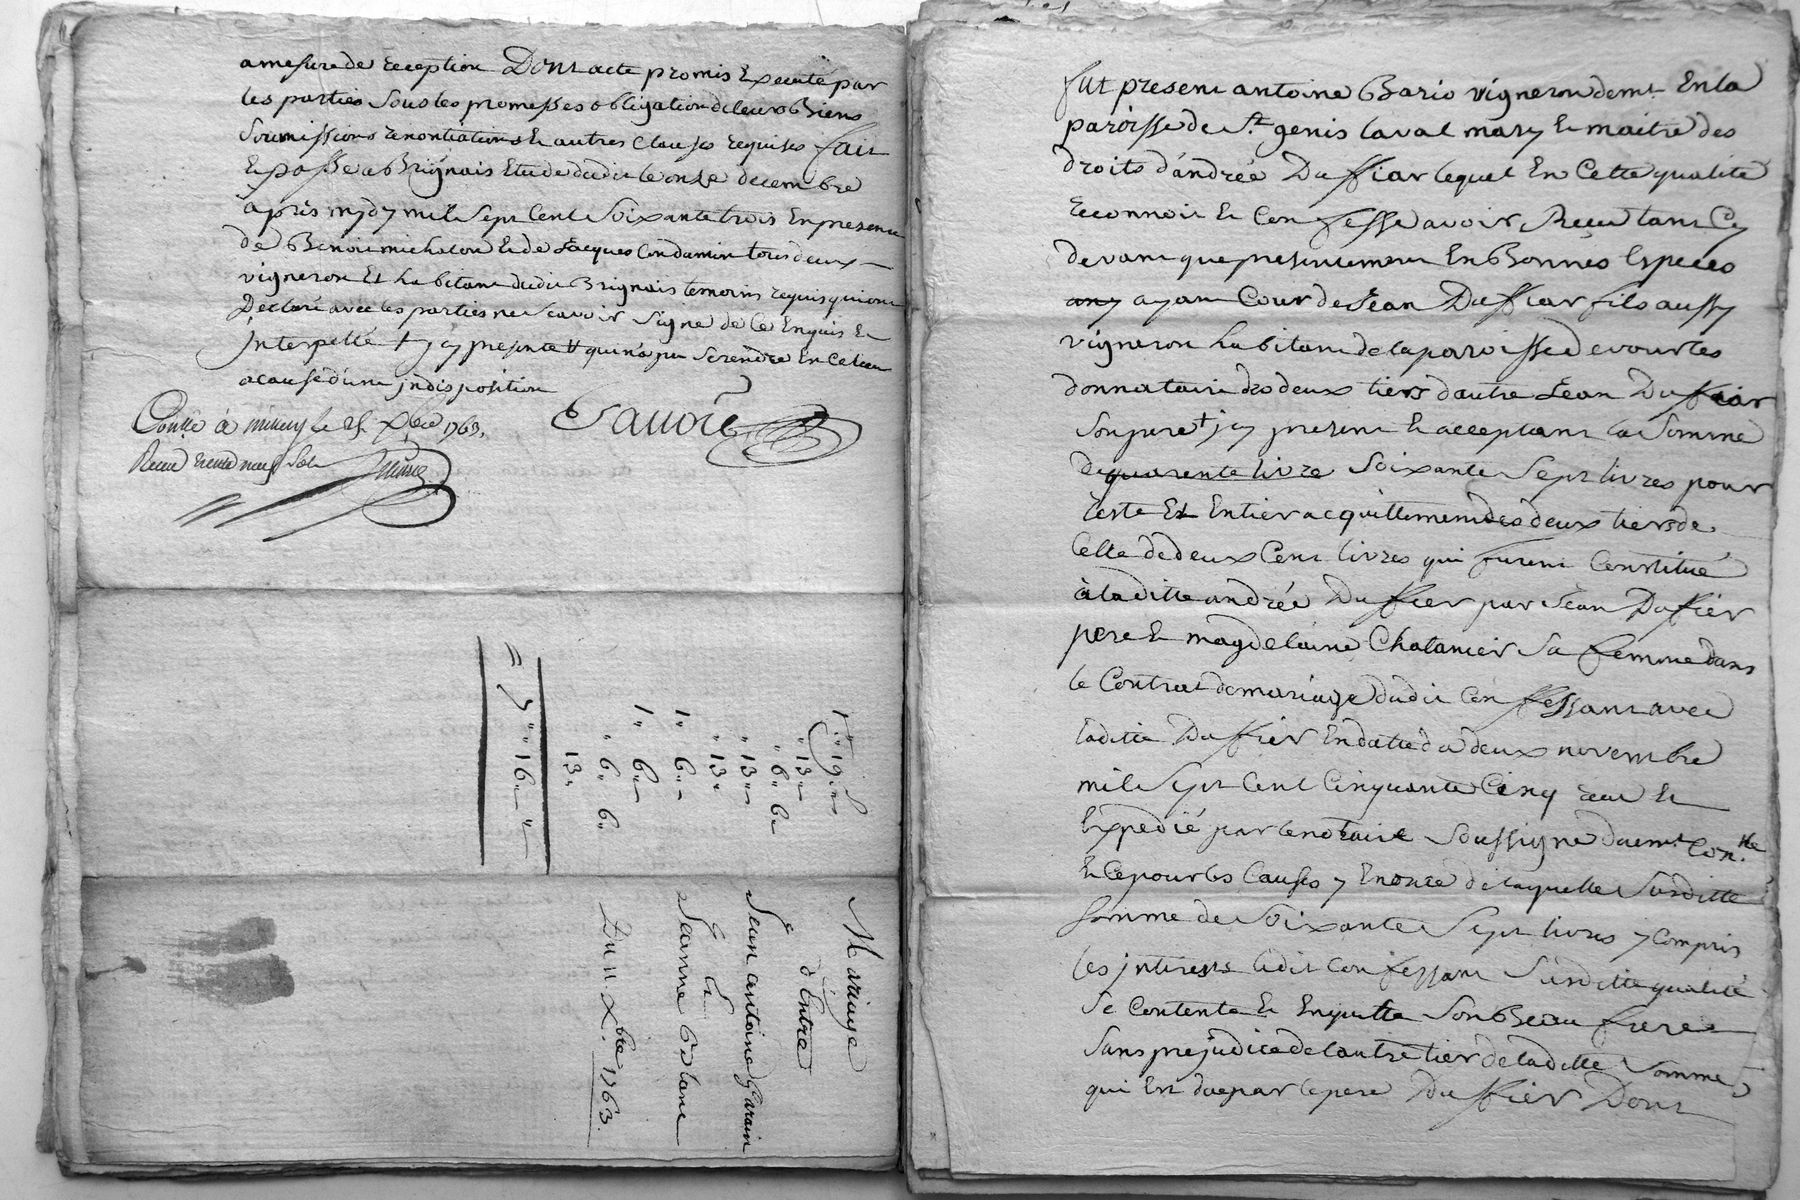 amesure de reception Dont acte promis Executé par
les parties Sous les promesses obligation de leurs Biens
Soumissions renontiations & autres Clauses requises fait
& passé a Brignais Etude dudit le onze decembre
apris mydy mil Sept Cent Soixante trois En presence
de Benoit michalon & de Jacques Condamin tous deux
vigneron Et habitant dudit Brignais temoins requis qui ont
Declaré avec les parties ne Scavoir Signe de Ce Enquis &
Interpellé † y cy presente # qui n'a pu Se rendre En Ce lieu
a cause d'une jndisposition
Conllé à millery le 25 Xbre 1763.
Receu trente neuf Sols
1tt 19 s
" 13 "
" 6 " 6 d
" 13 "
" 13 "
1 " 6 "
1 " 6 "
" 6 " 6 "
13 "
= 7 " 16 " "
Mariage
d'Entre
Jean antoine Garain
&
Jeanne
Du 11 Xbre 1763.
fut present antoine Bario vigneron demt En la
paroisse de St genis laval mary & maitre des
droits d'andrée Duffiar lequel En Cette qualité
reconnoit & Confesse avoir Receu tant Cy
devant que presentement En Bonnes Especes
any ayant Cour de Jean Duffiar fils aussy
vigneron habitant de la paroisse de vourles
donnataire des deux tiers d'autre Jean Duffiar
Son pere † jcy present & acceptant la Somme
de quarente livre Soixante Sept livres pour
reste Et Entier acquittement des deux tiers de
Celle de deux Cent livres qui furent Constitué
à la ditte andrée Duffier par Jean Duffier
pere & magdelaine Chatanier Sa femme dans
le Contrat de mariage dudit Confessant avec
laditte Duffier En datte du deux novembre
mil Sept Cent Cinquante Cinq receu &
Expedié par le notaire Soussigne duemt Con.lle
& Ce pour les Causes y Enoncé de laquelle Susditte
Somme de Soixante Sept livres y Compris
les jnterests ledit Confessant Susditte qualité
Se Contente & Enquitte Son Beau frere
Sans prejudice de l'autre tier de laditte Somme
qui Est due par le pere Duffier Dont